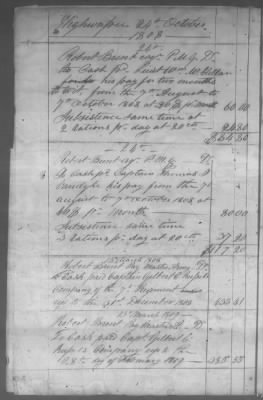 Highwassee 24th October
1808
24th
Robert Brent esqr. P.M.G. Dr.
To Cash pd. Lieut Wm. McClellan
his pay for two months
to wit from the 7th August to
7th October 1808 at 30$ pr month 60.00
Subsistence same time at
2 Rations pr day at 20 cts 24.80
$84.80
24th
Robert Brent esqr. P.M.G. Dr.
To Cash pd. Captain Thomas J
Vandyke his pay from the 7th
august to 7th october 1808 at
40$ pr month 80.00
Subsistence same time
3 rations pr day at 20 cts 37.20
117.20
1808
Robert Brent Pay Master Army Dr.
To Cash paid Captain Gilbert C. Russell
Company of the 7th Regiment
up to the 31st December 1808
15th March 1809
Robert Brent Pay Master Dr.
To Cash paid Capt. Gilbert C.
Company up to the
28th of February 1809